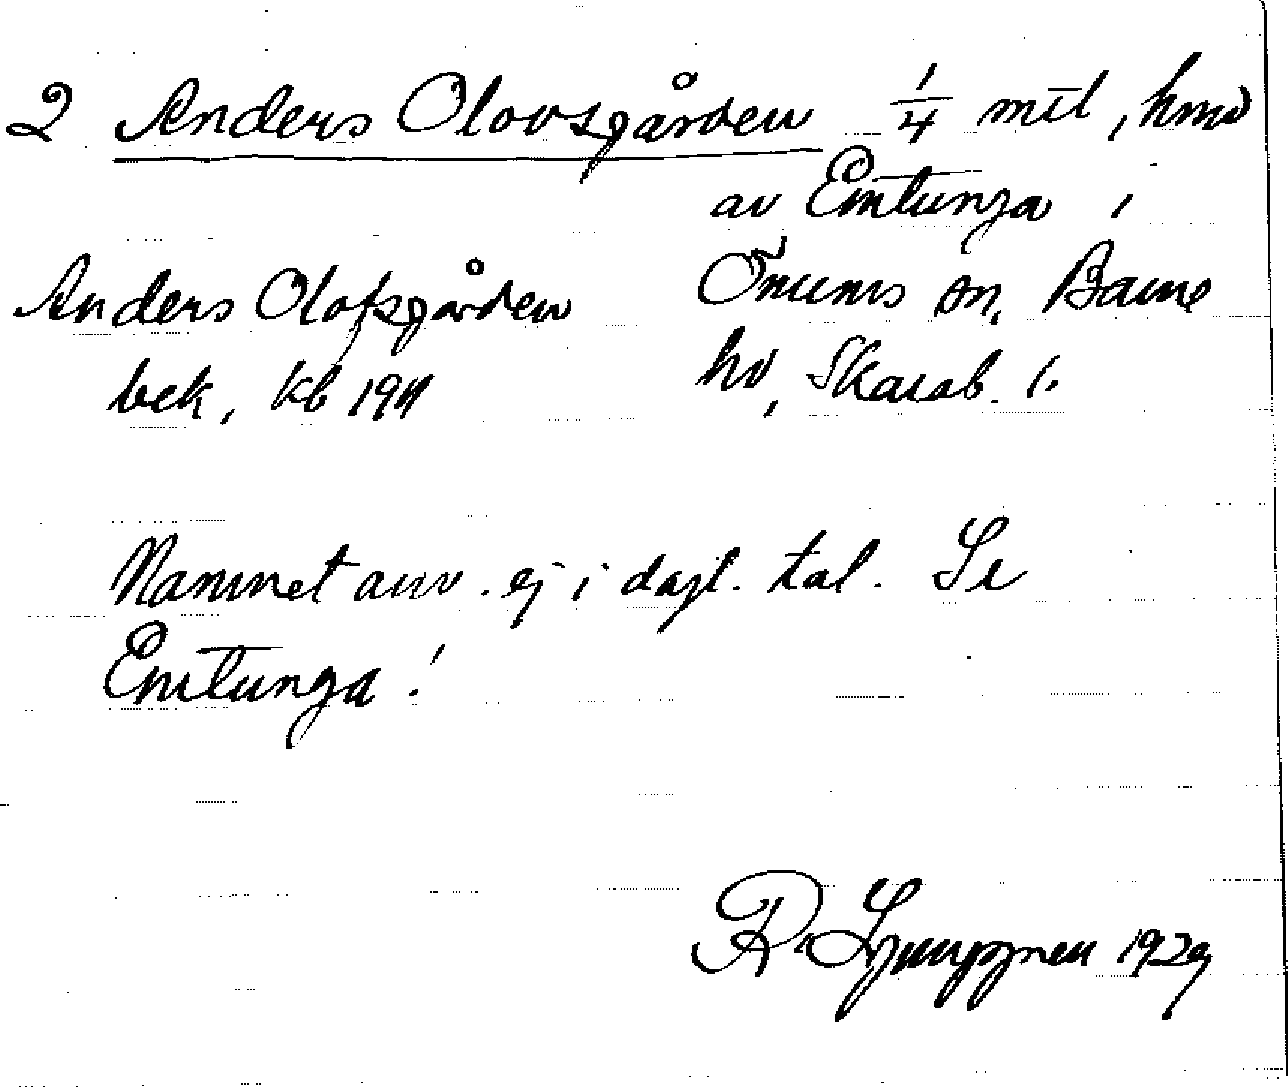 2 Anders Olovsgården 1/4 mtl, hmd
av Emtunga i
Anders Olofsgården Önums sn, Barne
bek, kb 1911 hd, Skarab. l.
Namnet anv. ej i dagl. tal. Se
Emtunga!
R. Ljunggren 1929